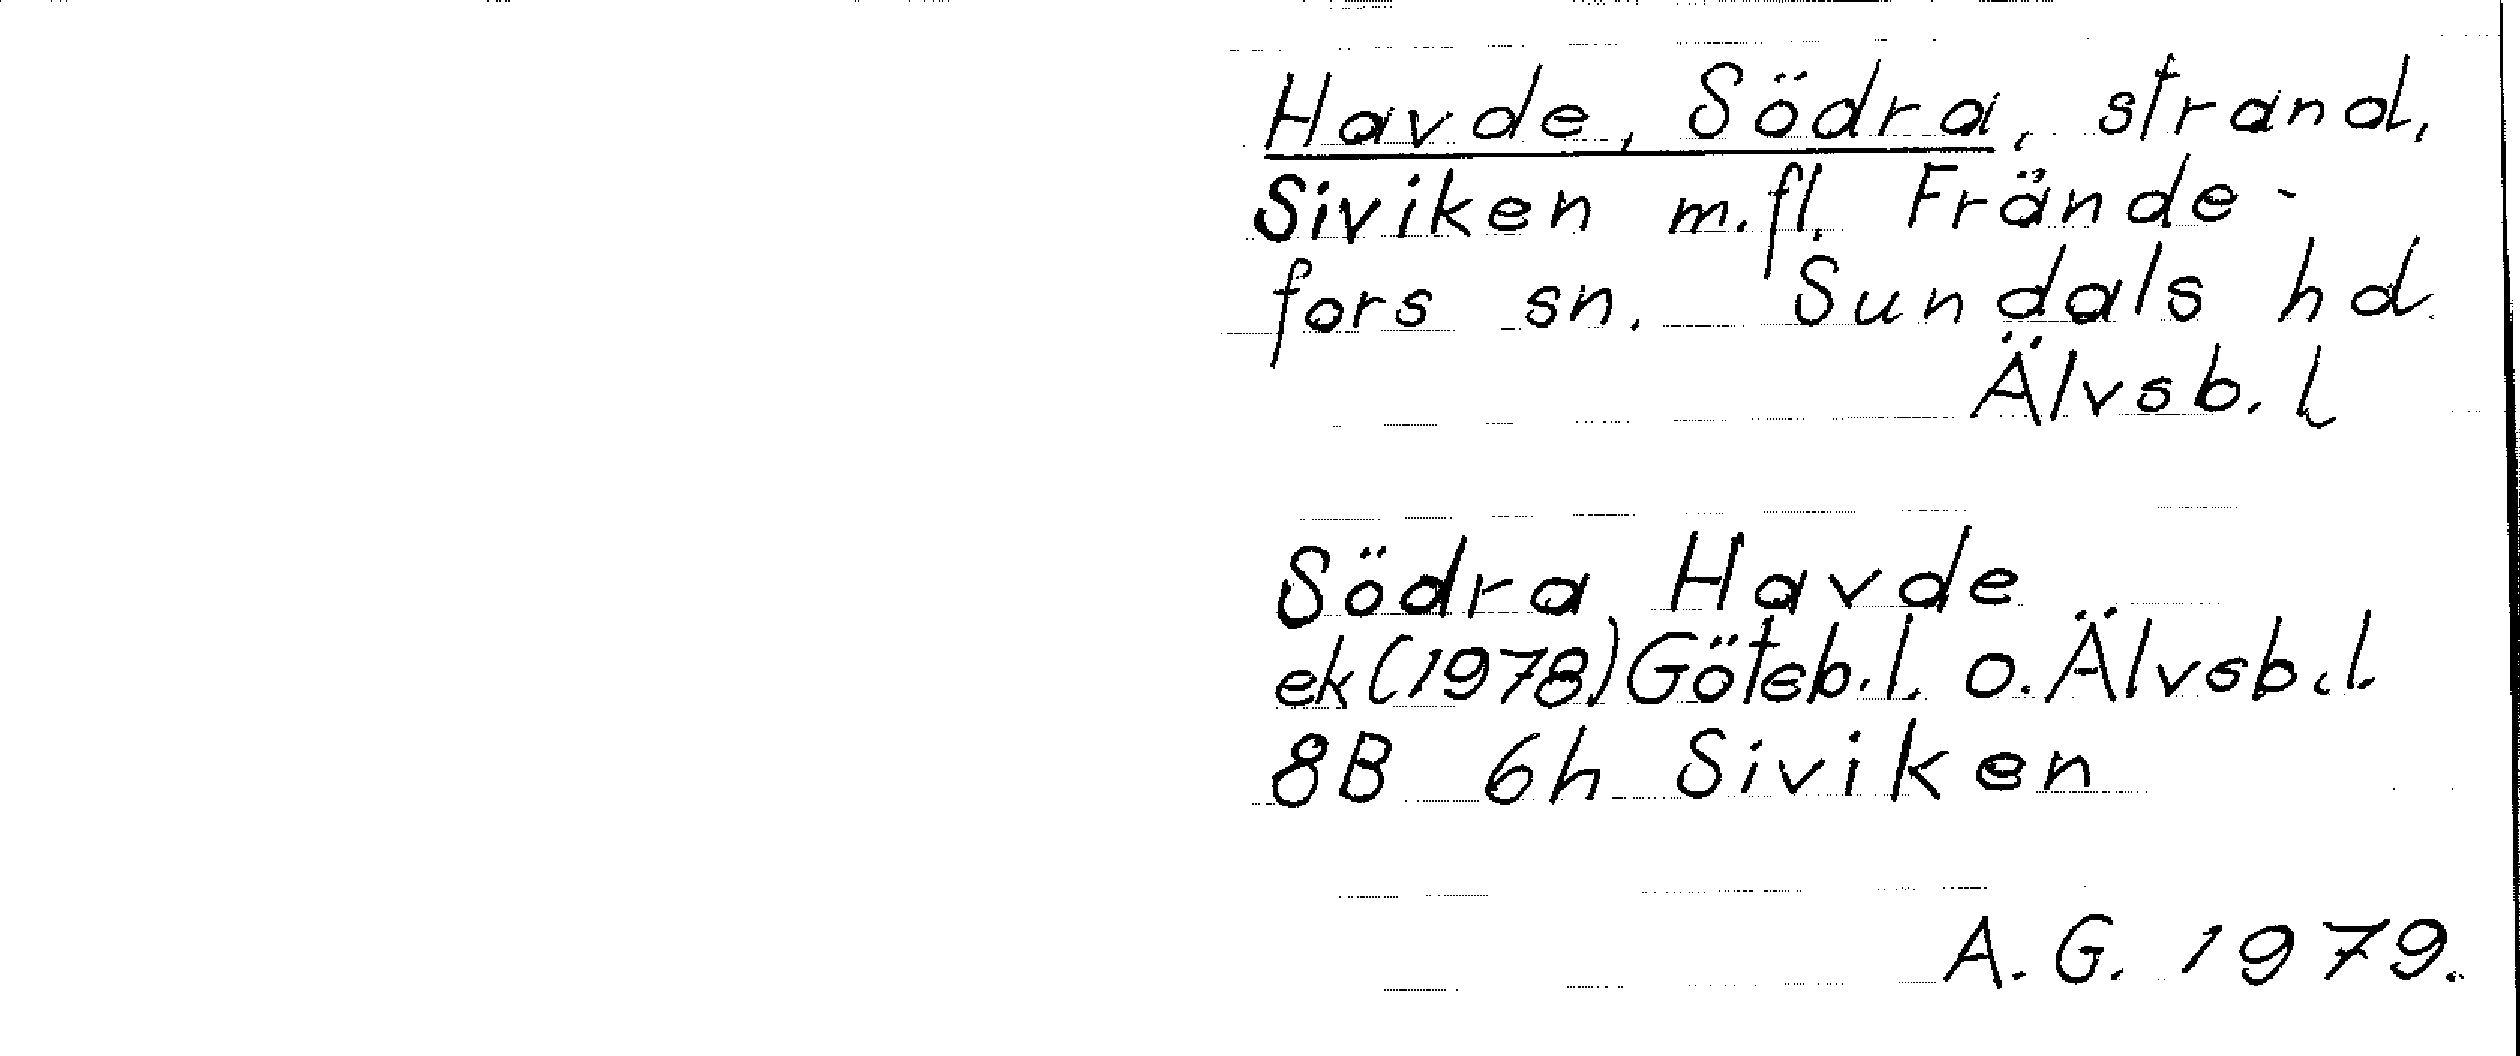 Havde, Södra, strand,
Siviken m.fl. Frände-
fors sn. Sundals hd.
Älvsb. l
Södra Havde
ek (1978) Göteb.l. o. Älvsb.l.
8B 6h Siviken
A. G. 1979.